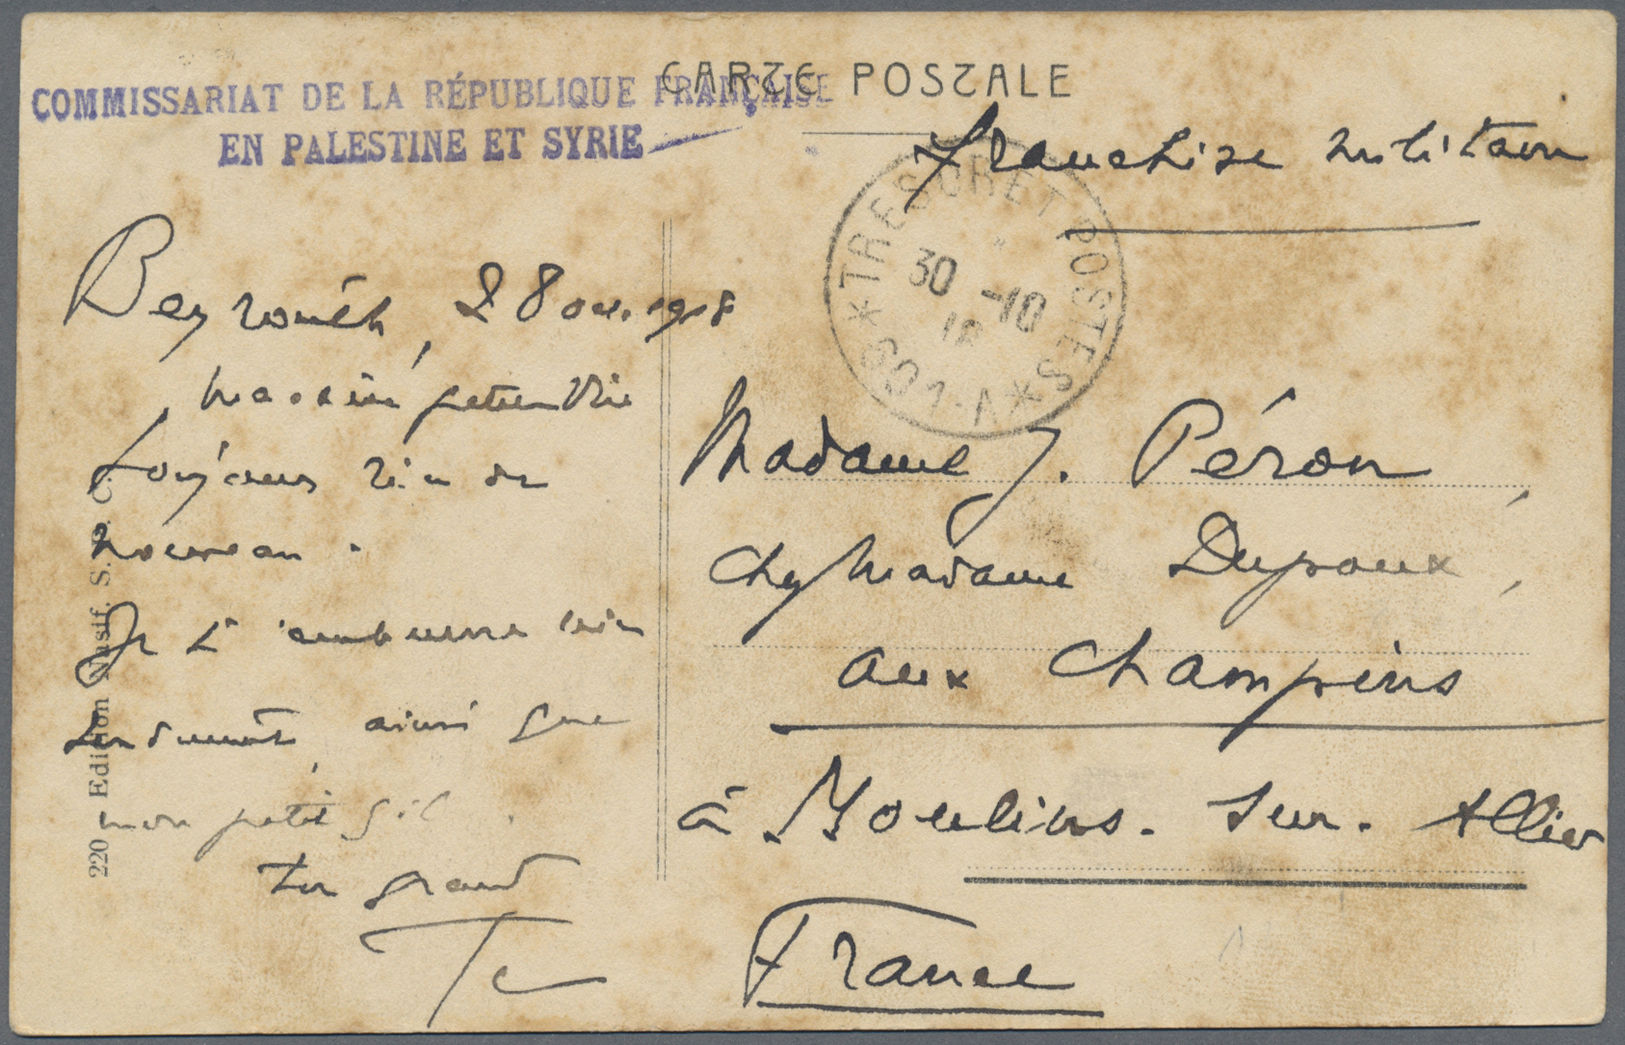 COMMISSARIAT DE LA RÉPUBLIQUE FRANÇAISE
EN PALESTINE ET SYRIE
CARTE POSTALE
Franchise militaire
* TRESOR ET POSTES *
30 -10
18
Beyrouth, 28 oct. 1918
petite
toujours rien de
nouveau.
Je t'embrasse bien
tendrement, ainsi que
mon petit
Ton grand
Madame J. Péron,
chez Madame Dupoux,
aux Champins
à Moulins-sur-Allier
France
220 Edition